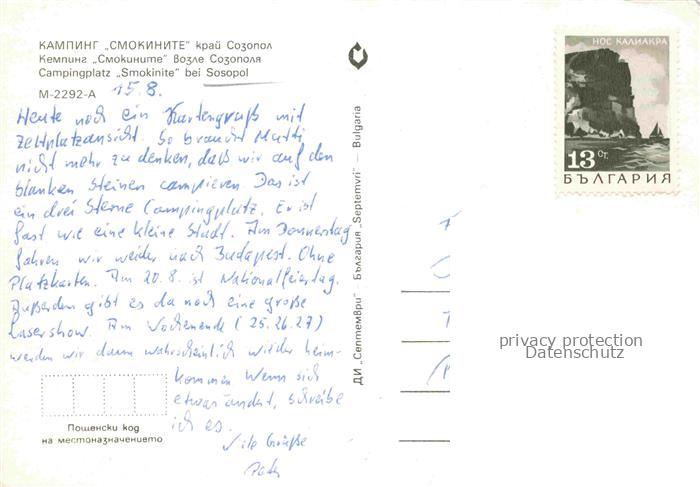 КАМПИНГ „СМОКИНИТЕ" край Созопол
Кемпинг „Смокините" возле Созополя
Campingplatz „Smokinite" bei Sosopol
М-2292-А 15.8.
Heute noch ein Kartengruß mit
Zeltplatzansicht. So braucht Mutti
nicht mehr zu denken, daß wir auf den
blanken Steinen campieren Das ist
ein drei Sterne Campingplatz. Er ist
fast wie eine kleine Stadt. Am Donnerstag
fahren wir weiter nach Budapest. Ohne
Platzkarten. Am 20.8. ist Nationalfeiertag.
Außerdem gibt es da noch eine große
Lasershow. Am Wochenende (25.26.27)
werden wir dann wahrscheinlich wieder heim-
kommen Wenn sich
etwas ändert, schreibe
ich es.
Viele Grüße
Пощенски код
на местоназначението
ДИ „Септември" — България „Septemvri" — Bulgaria
НОС КАЛИАКРА
13 Ст.
БЪЛГАРИЯ
privacy protection
Datenschutz